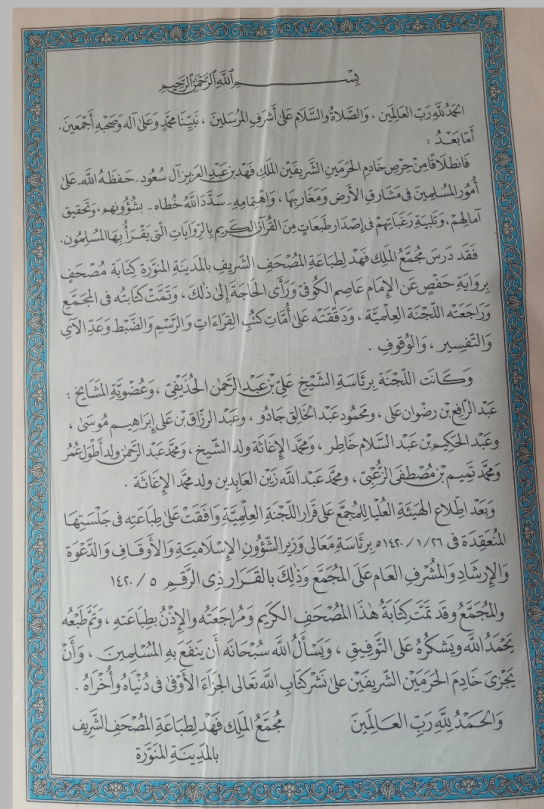 بِسْــــــمِ ٱللَّهِ ٱلرَّحْمَٰنِ ٱلرَّحِيمِ
الحَمْدُ للَّهِ رَبِّ العَالَمِين ، وَالصَّلَاةُ وَالسَّلَام عَلىٰ أَشْرَفِ المُرسَلينَ ، نَبِيِّنَا مُحَمَّدٍ وَعَلىٰ آلِهِ وَصَحْبِهِ أَجْمَعِينَ.
أَمَّا بَعْدُ :
فَانطِلَاقًا مِنْ حِرْصِ خَادِمِ الحَرَمَيْنِ الشَّرِيفَيْنِ المَلِكِ فَهْد بْنِ عَبْدِ العَزِيز آل سُعُود - حَفِظَهُ اللَّه - عَلىٰ
أُمُورِ المُسْلِمِينَ فِي مَشَارِقِ الأَرْضِ وَمَغَارِبِهَا ، وَاهْتِمَامِهِ - سَدَّدَ اللَّهُ خُطَاه - بِشُؤُونِهِم ، وَتَحْقِيقِ
آمَالِهِمْ ، وَتَلْبِيَةِ رَغَبَاتِهِمْ فِي إِصْدَارِ طَبَعَاتٍ مِنَ القُرْآنِ الكَرِيمِ بِالرِّوَايَاتِ الَّتِي يَقْرَأُ بِهَا المُسْلِمُون.
فَقَدْ دَرَسَ مُجَمَّعُ المَلِكِ فَهْد لِطِبَاعَةِ المُصْحَفِ الشَّرِيفِ بِالمَدِينَةِ المُنَوَّرَةِ كِتَابَةَ مُصْحَفٍ
بِرِوَايَةِ حَفْصٍ عَنِ الإِمَامِ عَاصِمٍ الكُوفِيِّ وَرَأَى الحَاجَةَ إِلىٰ ذٰلِكَ ، وَتَمَّتْ كِتَابَتُهُ فِي المُجَمَّعِ
وَرَاجَعَتْهُ اللَّجْنَةُ العِلْمِيَّة ، وَدَقَّقَتْهُ عَلىٰ أُمَّاتِ كُتُبِ القِرَاءَاتِ وَالرَّسْمِ وَالضَّبْطِ وَعَدِّ الآيِ
وَالتَّفْسِيرِ ، وَالوُقُوفِ .
وَكَانَتِ اللَّجْنَةُ بِرِئَاسَةِ الشَّيْخِ عَلِيِّ بْنِ عَبْدِ الرَّحْمٰنِ الحُذَيْفِيِّ ، وَعُضْوِيَّةِ المَشَايِخِ :
عَبْدِ الرَّافِعِ بْنِ رِضْوَان عَلِي ، وَمَحْمُود عَبْدِ الخَالِقِ جَادُو ، وَعَبْدِ الرَّزَّاقِ بْنِ عَلِي إِبْرَاهِيم مُوسَىٰ ،
وَعَبْدِ الحَكِيمِ بْنِ عَبْدِ السَّلَامِ خَاطِر ، وَمُحَمَّد الإِغَاثَة وَلد الشَّيْخ ، وَمُحَمَّد عَبْدِ الرَّحْمٰنِ وَلد أَطْوَل عُمُر
وَمُحَمَّد تَمِيم بْنِ مُصْطَفَى الزُّعْبِيِّ ، وَمُحَمَّد عَبْدِ اللَّهِ زَيْنِ العَابِدِين وَلد مُحَمَّد الإِغَاثَة .
وَبَعْدَ اطِّلَاعِ الهَيْئَةِ العُلْيَا لِلْمُجَمَّعِ عَلىٰ قَرَارِ اللَّجْنَةِ العِلْمِيَّةِ وَافَقَتْ عَلىٰ طِبَاعَتِهِ فِي جَلْسَتِهَا
المُنعَقِدَةِ فِي ١٤٢٠/١/٢٦ه بِرِئَاسَةِ مَعَالِي وَزِيرِ الشُّؤُونِ الإِسْلَامِيَّةِ وَالأَوْقَافِ وَالدَّعْوَةِ
وَالإِرْشَادِ وَالمُشْرِفِ العَام عَلَى المُجَمَّعِ وَذٰلِكَ بِالقَرَارِ ذِي الرَّقْمِ ٥ / ١٤٢٠
وَالمُجَمَّعُ وَقَد تَمَّتْ كِتَابَةُ هٰذَا المُصْحَفِ الكَرِيمِ وَمُرَاجَعَتُهُ وَالإِذْنُ بِطِبَاعَتِهِ ، وَتَمَّ طَبْعُهُ
يَحْمَدُ اللَّهَ وَيَشْكُرُهُ عَلَى التَّوفِيقِ ، وَيَسْأَلُ اللَّهَ سُبْحَانَهُ أَن يَنفَعَ بِهِ المُسْلِمِينَ ، وَأَنْ
يَجْزِيَ خَادِمَ الحَرَمَيْنِ الشَّرِيفَيْنِ عَلىٰ نَشْرِ كِتَابِ اللَّهِ تَعَالَى الجَزَاءَ الأَوْفىٰ فِي دُنْيَاهُ وَأُخْرَاهُ .
وَالحَمْدُ لِلَّهِ رَبِّ العَالَمِينَ
مُجَمَّعُ المَلِكِ فَهْد لِطِبَاعَةِ المُصْحَفِ الشَّرِيفِ
بِالمَدِينَةِ المُنَوَّرَة